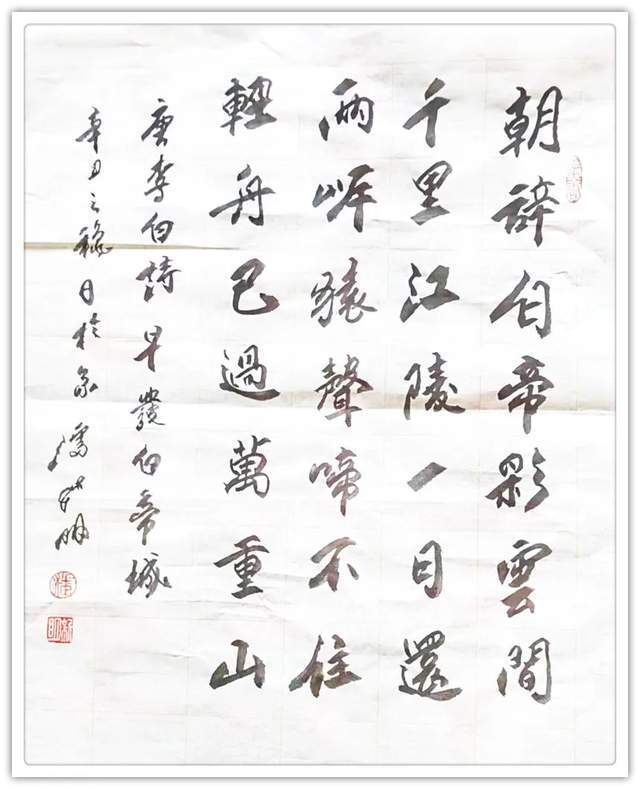 朝辞白帝彩雲間
千里江陵一日還
兩岸猿聲啼不住
輕舟已過萬重山
唐李白詩早發白帝城
辛丑之龝日於潘明